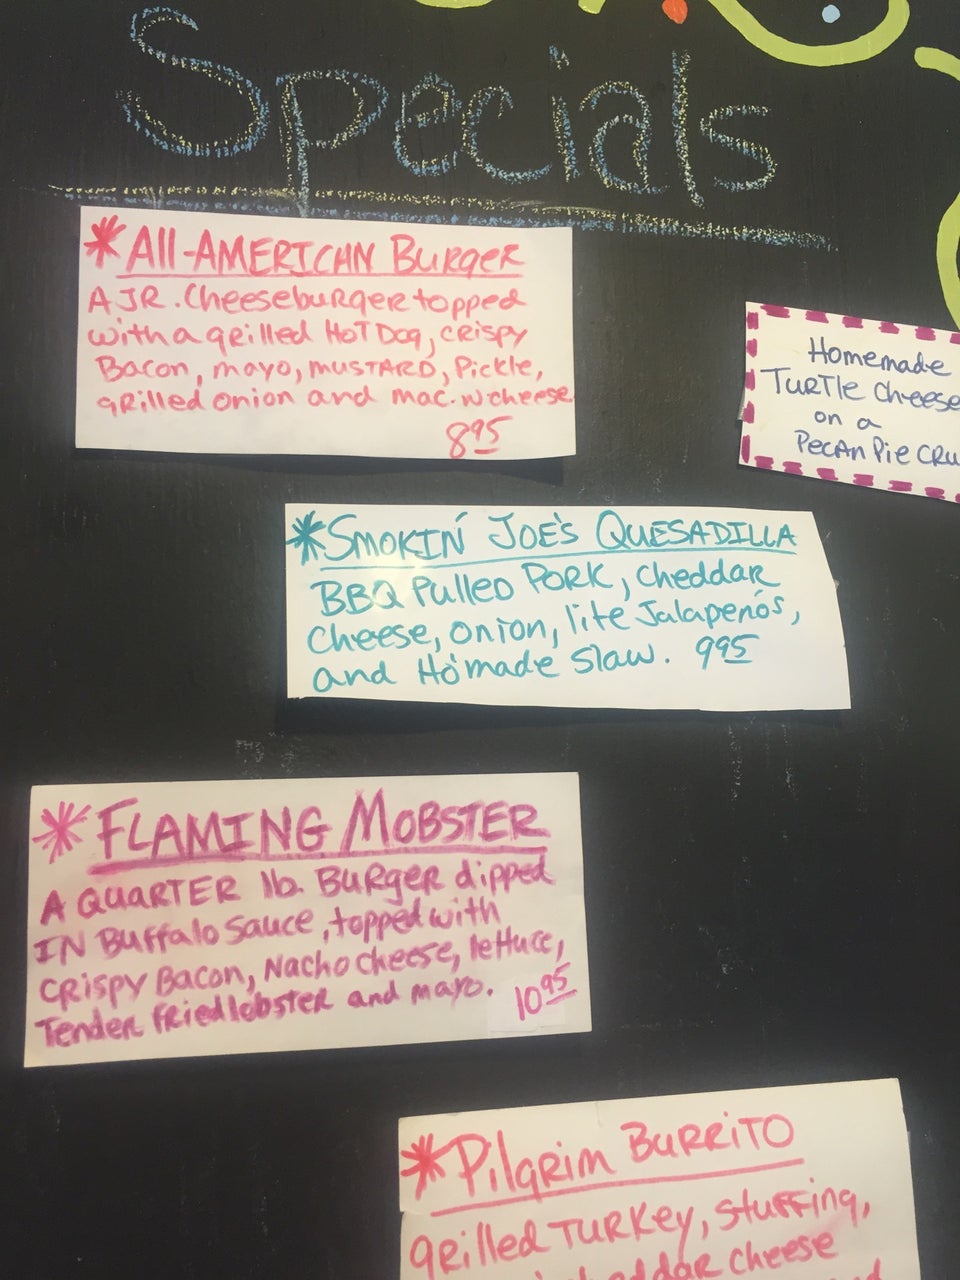 Specials
*All-AMERICAN BurgeR
A JR. CheeseburgeR topped
with a grilled HoT Dog, CRispy
Bacon, mayo, musTARD, Pickle,
gRilled onion and mac.N cheese
8.95
Homemade
TuRTle Cheese
on a
PecAn Pie CRu
*SMOKIN' JOE'S QUESADILLA
BBQ Pulled PORK, cheddar
Cheese, onion, lite Jalapeños,
and Ho'made Slaw. 9.95
*FLAMING MOBSTER
A QUARTER lb. BuRgeR dipped
IN Buffalo sauce, topped with
CRispy Bacon, Nacho cheese, lettuce,
Tender FRied lobster and mayo. 10.95
*Pilgrim BuRRiTO
gRilled TuRKey, stuffing,
cheddar cheese